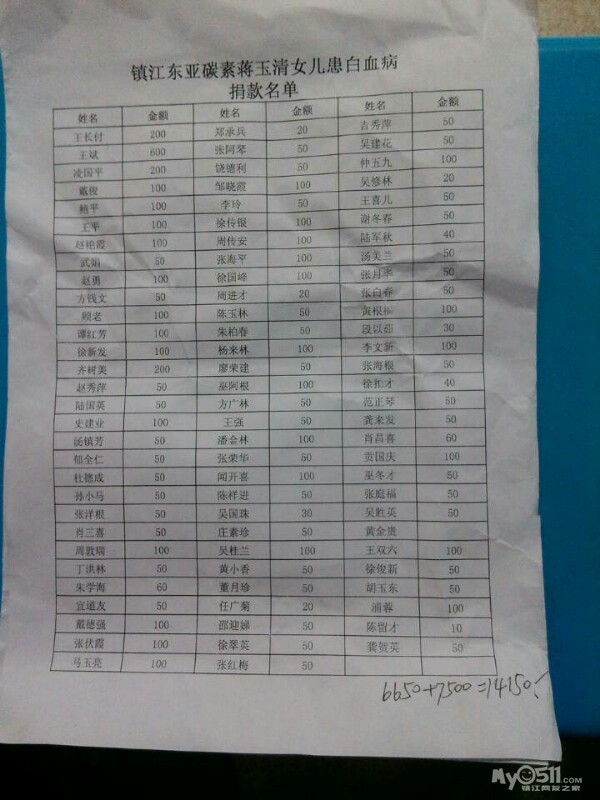 镇江东亚碳素蒋玉清女儿患白血病
捐款名单
姓名 金额 姓名 金额 姓名 金额
王长付 200 郑承兵 20 吉秀萍 50
王斌 600 张阿琴 50 吴建花 50
凌国平 200 饶德利 50 仲五九 100
戴俊 100 邹晓霞 100 吴修林 20
鲍平 100 李玲 50 王喜儿 50
王平 100 徐传银 100 谢冬春 50
赵艳霞 100 周传安 100 陆军秋 40
武娟 50 张海平 100 汤美兰 50
赵勇 100 徐国峰 100 张月华 50
方钱文 50 周进才 20 张白春 50
顾老 100 陈玉林 50 黄根福 100
谭红芳 100 朱柏春 50 段以茹 30
徐新发 100 杨来林 100 李文新 100
齐树美 200 廖荣建 50 张海根 50
赵秀萍 50 巫阿根 100 徐扣才 40
陆国英 50 方广林 50 范正琴 50
史建业 100 王强 50 龚来发 50
汤镇芳 50 潘金林 100 肖昌喜 60
郁全仁 50 张荣华 50 贡国庆 100
杜德成 50 闻开喜 100 巫冬才 50
孙小马 50 陈祥进 50 张庭福 50
张洋根 50 吴国珠 30 吴胜英 50
肖三喜 50 庄素珍 50 黄金贵
周敦瑞 100 吴桂兰 100 王双六 100
丁洪林 50 黄小香 50 徐俊新 50
朱学海 60 董月珍 50 胡玉东 50
宣道友 50 任广菊 20 浦蓉 100
戴德强 100 邵迎娣 50 陈留才 10
张伏霞 100 徐翠英 50 龚贺英 50
马玉亮 100 张红梅 50
6650+7500=14150.
My0511.COM
镇江网友之家